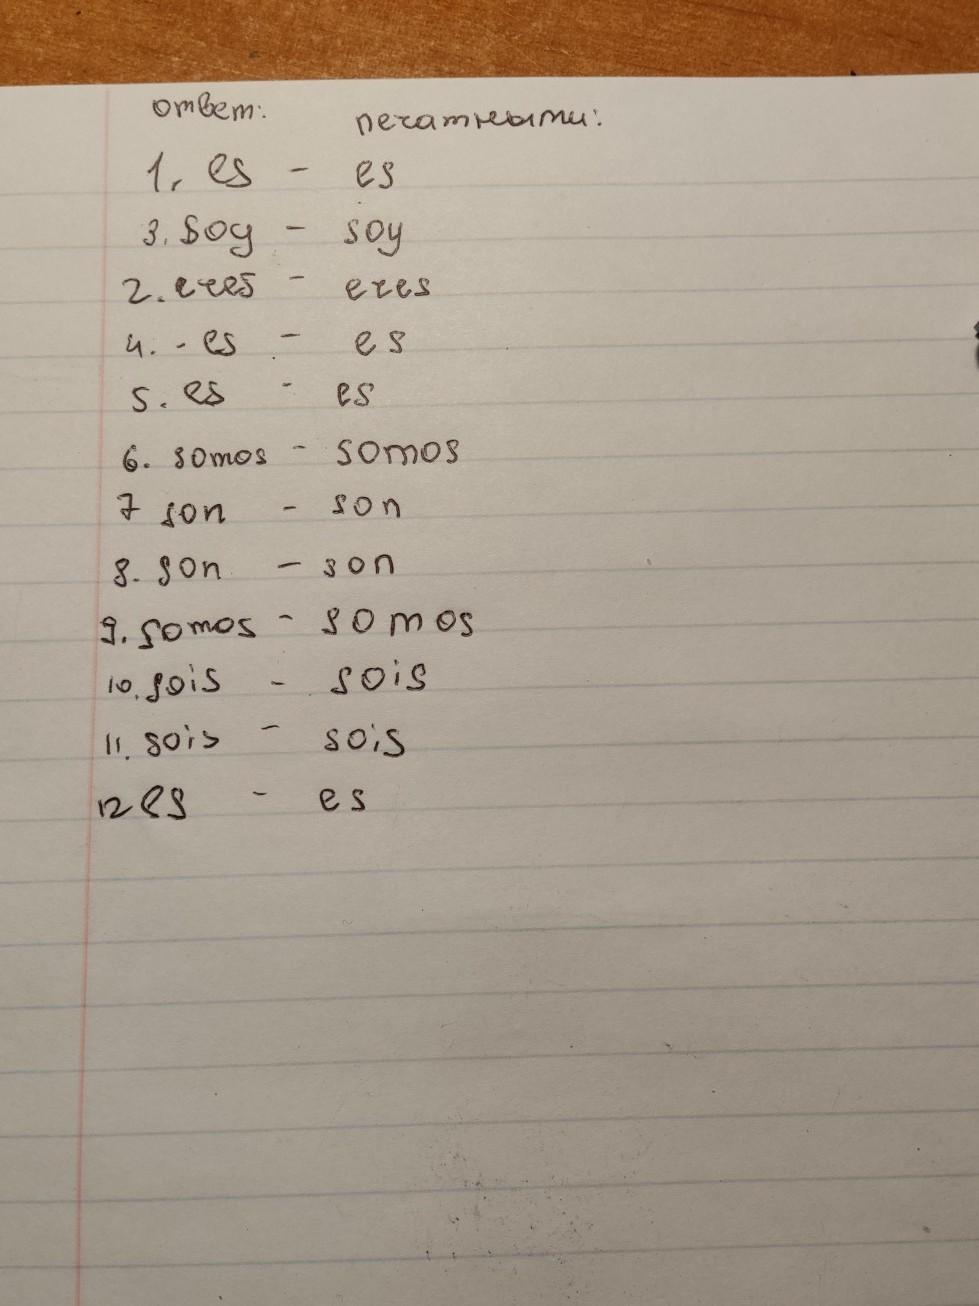 ответ: печатными:
1. es - es
3. soy - soy
2. eres - eres
4. - es - es
5. es - es
6. somos - somos
7 son - son
8. son - son
9. somos - somos
10. sois - sois
11. sois - sois
12 es - es